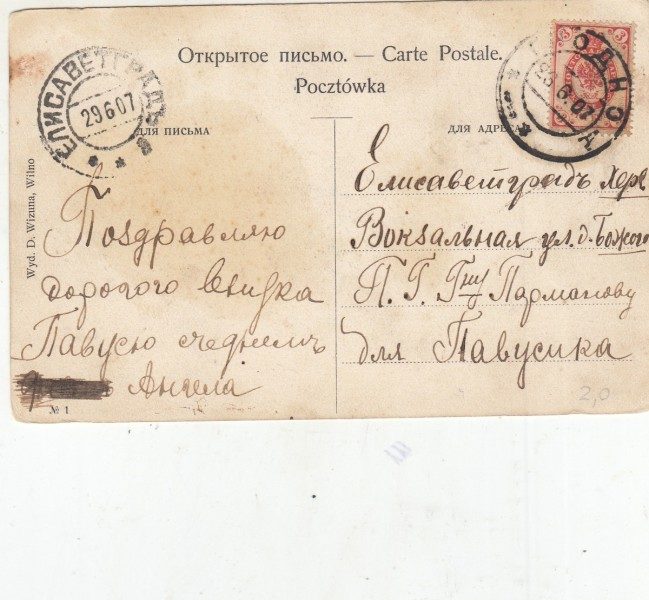 Открытое письмо. — Carte Postale.
Pocztówka
ЕЛИСАВЕТГРАДЪ
29 6 07
ОДНО
6.07
3
3
ДЛЯ ПИСЬМА
ДЛЯ АДРЕСА
Wyd. D. Wizuna, Wilno
Поздравляю
дорогого внука
Павусю съ днемъ
Ангела
№ 1
Елисаветградъ Хер
Вокзальная ул. д. Божого
П. Г. Гну Парманову
для Павусика
2,0